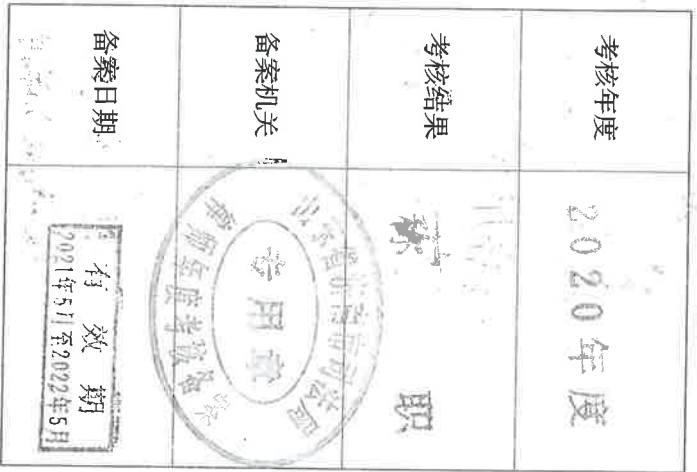 考核年度
2020年度
考核结果
称 职
备案机关
市司法局
律师年度考核备案
专用章
备案日期
有效期
2021年5月至2022年5月